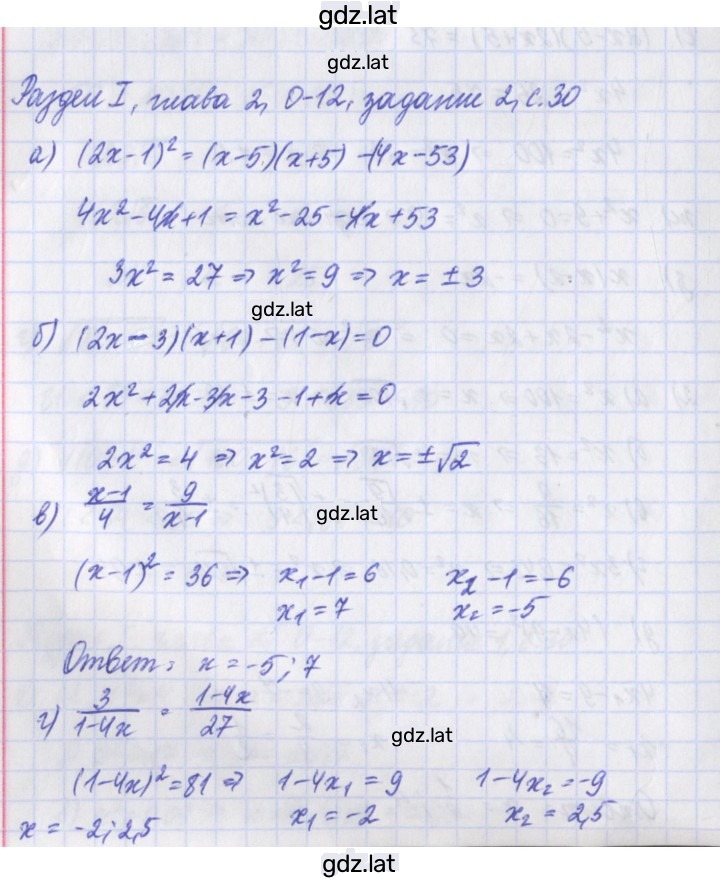 gdz.lat
gdz.lat
Раздел I, глава 2, О-12, задание 2, с.30
а) (2x-1)² = (x-5)(x+5) - (4x-53)
4x² - 4x + 1 = x² - 25 - 4x + 53
3x² = 27 ⇒ x² = 9 ⇒ x = ± 3
gdz.lat
б) (2x - 3)(x+1) - (1-x) = 0
2x² + 2x - 3x - 3 - 1 + x = 0
2x² = 4 ⇒ x² = 2 ⇒ x = ±√2
в) (x-1)/4 = 9/(x-1)
gdz.lat
(x-1)² = 36 ⇒ x₁ - 1 = 6 x₂ - 1 = -6
x₁ = 7 x₂ = -5
Ответ: x = -5; 7
г) 3/(1-4x) = (1-4x)/27
gdz.lat
(1-4x)² = 81 ⇒ 1-4x₁ = 9 1-4x₂ = -9
x₁ = -2 x₂ = 2,5
x = -2; 2,5
gdz.lat